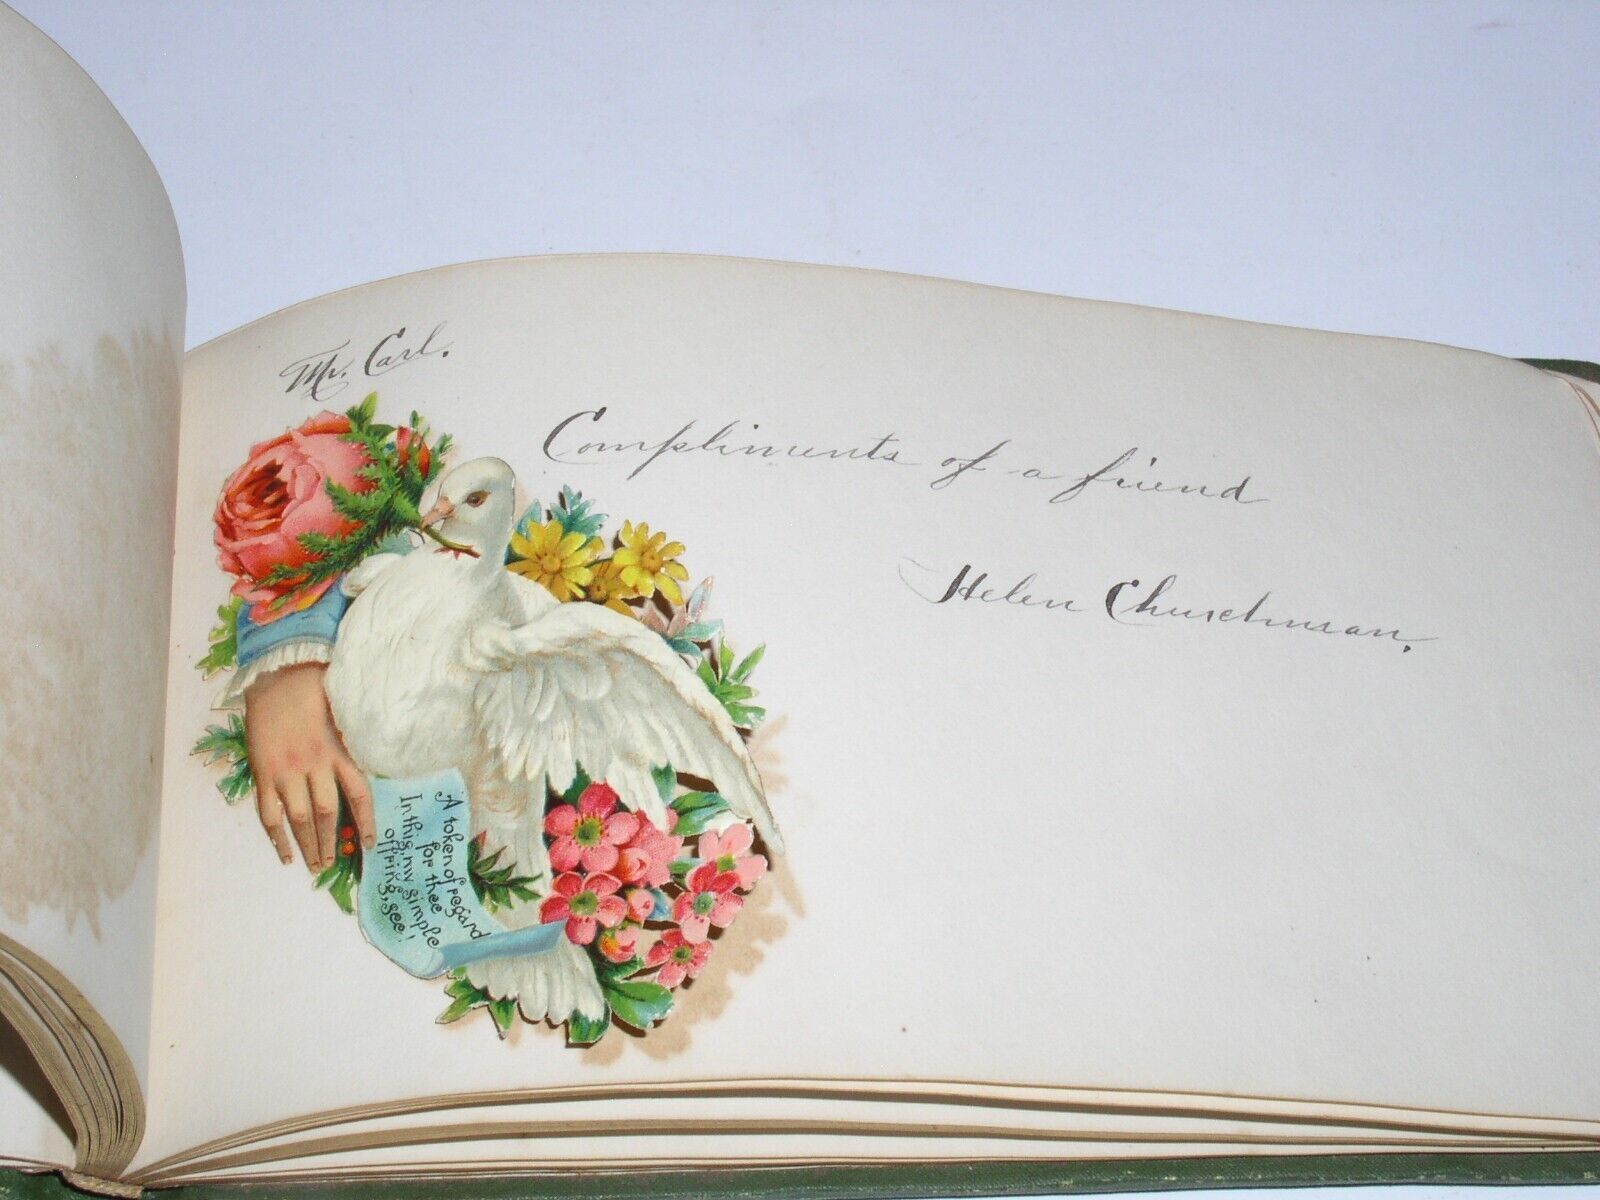 Mr. Carl.
Compliments of a friend
Helen Churchman.
A token of regard
for thee
In this, my simple
off'ring, see!